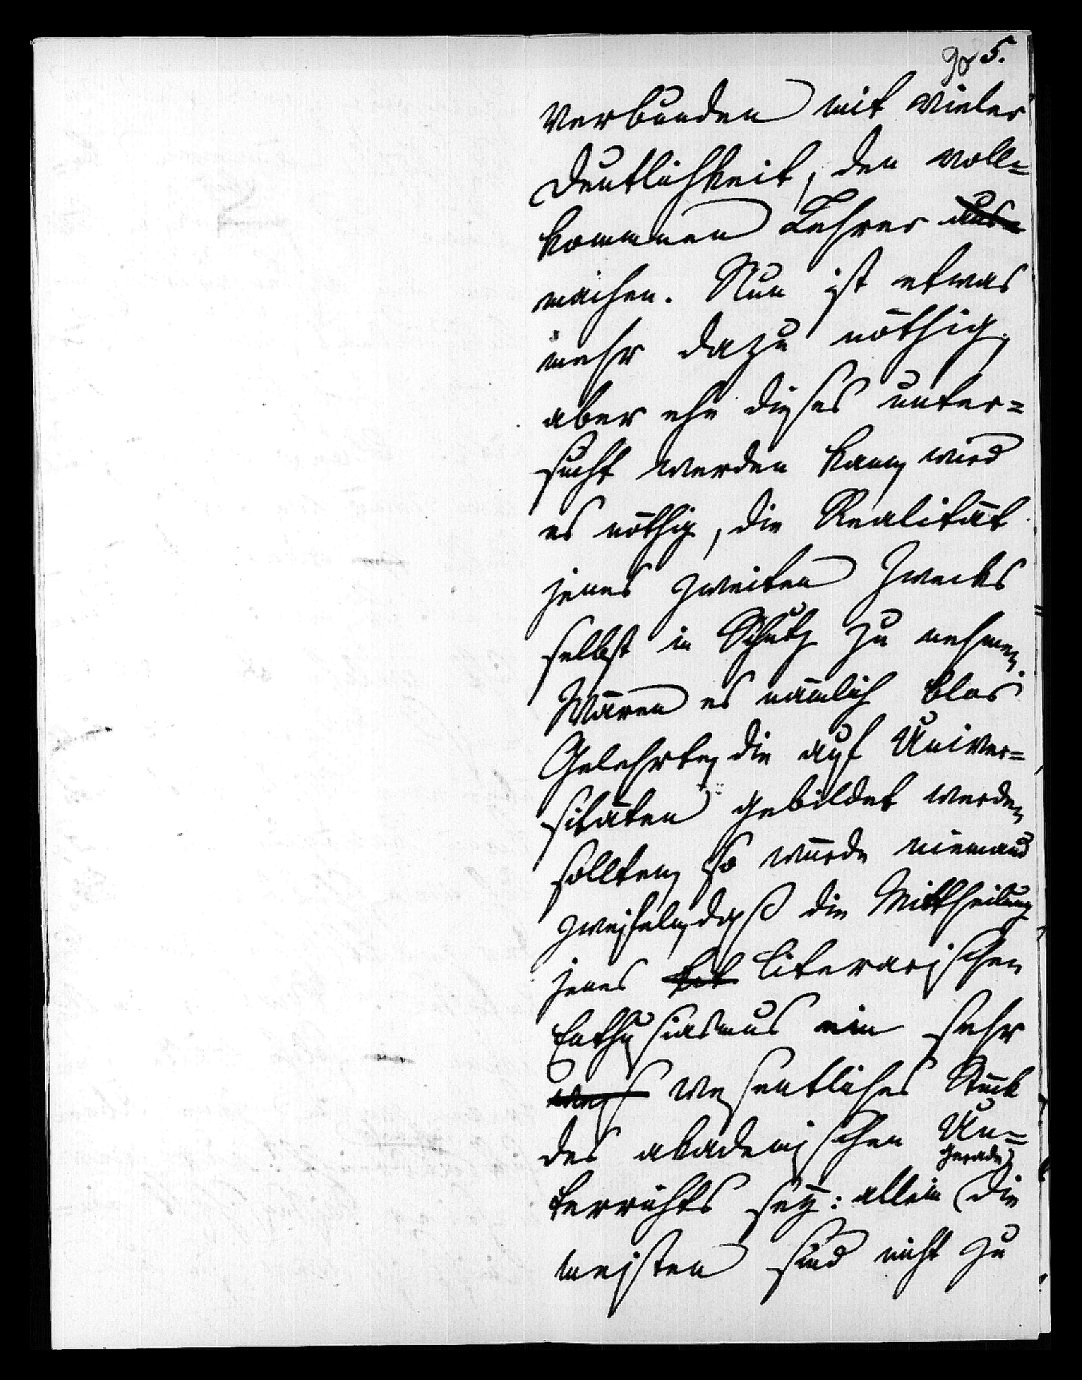 5.
verbunden mit vieler
Deutlichkeit, den voll=
kommnen Lehrer aus=
machen. Nun ist etwas
mehr dazu nöthig,
aber ehe dieses unter=
sucht werden kann, wird
es nöthig, die Realität
jenes zweiten Zwecks
selbst in Schutz zu nehmen.
Wären es nämlich blos
Gelehrte, die auf Univer=
sitäten gebildet werden
sollten, so würde niemand
zweifeln, daß die Mittheilung
jenes literarischen
Enthusiasmus ein sehr
wesentliches Stück
des akademischen Un=
gerade
terrichts sey: allein die
meisten sind nicht zu